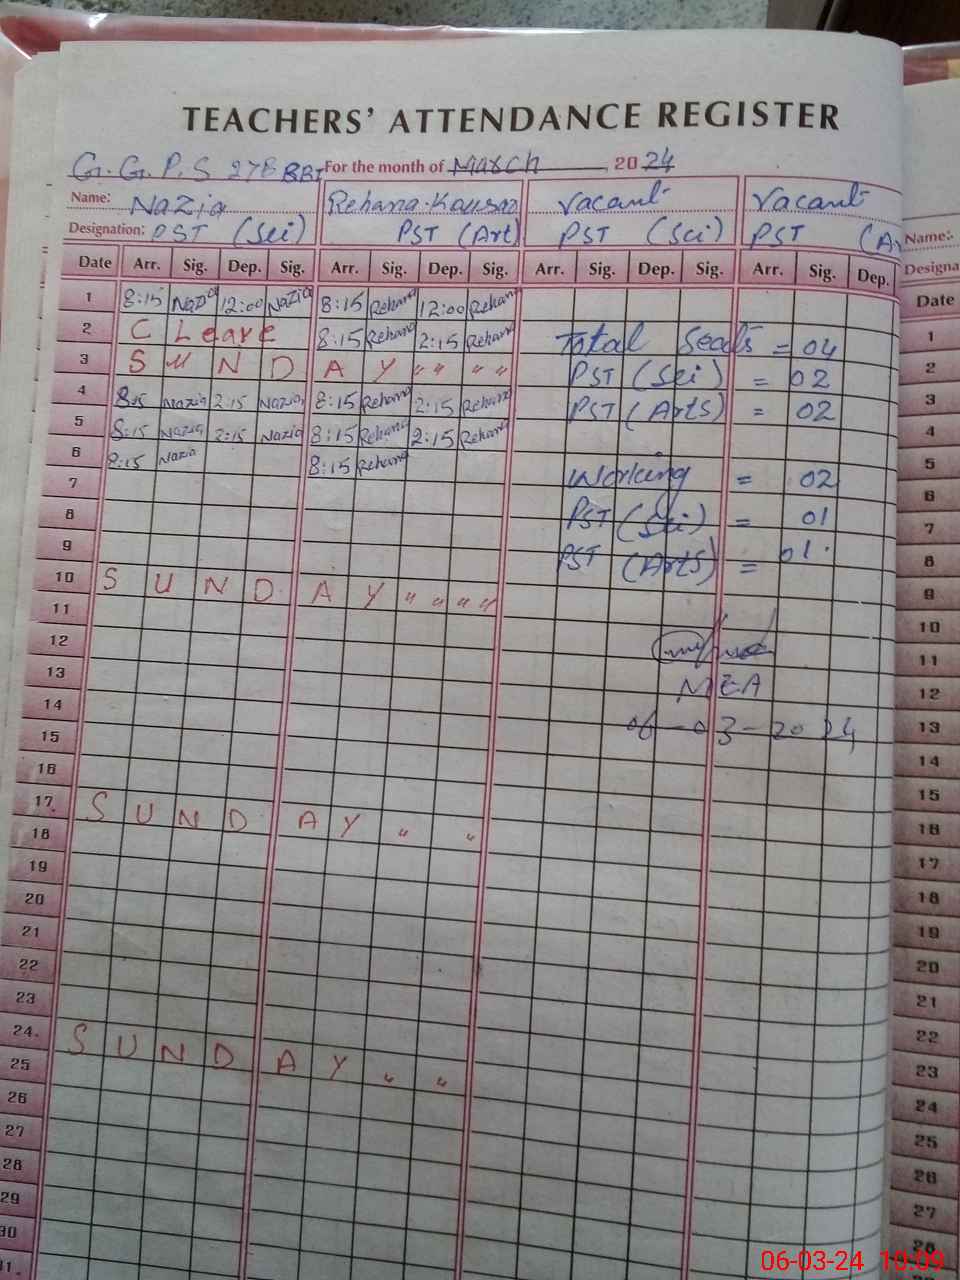 TEACHERS' ATTENDANCE REGISTER
G.G.P.S 27B BBI For the month of March 2024
Name: Nazia Rehana Kausar Vacant Vacant
Designation: PST (Sci) PST (Art) PST (Sci) PST (Ar Name:-
Designa
Date Arr. Sig. Dep. Sig. Arr. Sig. Dep. Sig. Arr. Sig. Dep. Sig. Arr. Sig. Dep. Date
1 8:15 Nazia 12:00 Nazia 8:15 Rehana 12:00 Rehana
2 C Leave 8:15 Rehana 2:15 Rehana Total Seats = 04
3 S U N D A Y " " " " PST (Sci) = 02
4 8:15 Nazia 2:15 Nazia 8:15 Rehana 2:15 Rehana PST (Arts) = 02
5 8:15 Nazia 2:15 Nazia 8:15 Rehana 2:15 Rehana
6 8:15 Nazia 8:15 Rehana
7 Working = 02
8 PST (Sci) = 01
9 PST (Arts) = 01.
10 S U N D A Y " " " "
11
12
13 MEA
14 06-03-2024
15
16
17. S U N D A Y " "
18
19
20
21
22
23
24. S U N D A Y " "
25
26
27
28
29
30
31.
1
2
3
4
5
6
7
8
9
10
11
12
13
14
15
16
17
18
19
20
21
22
23
24
25
26
27
28
06-03-24 10:09